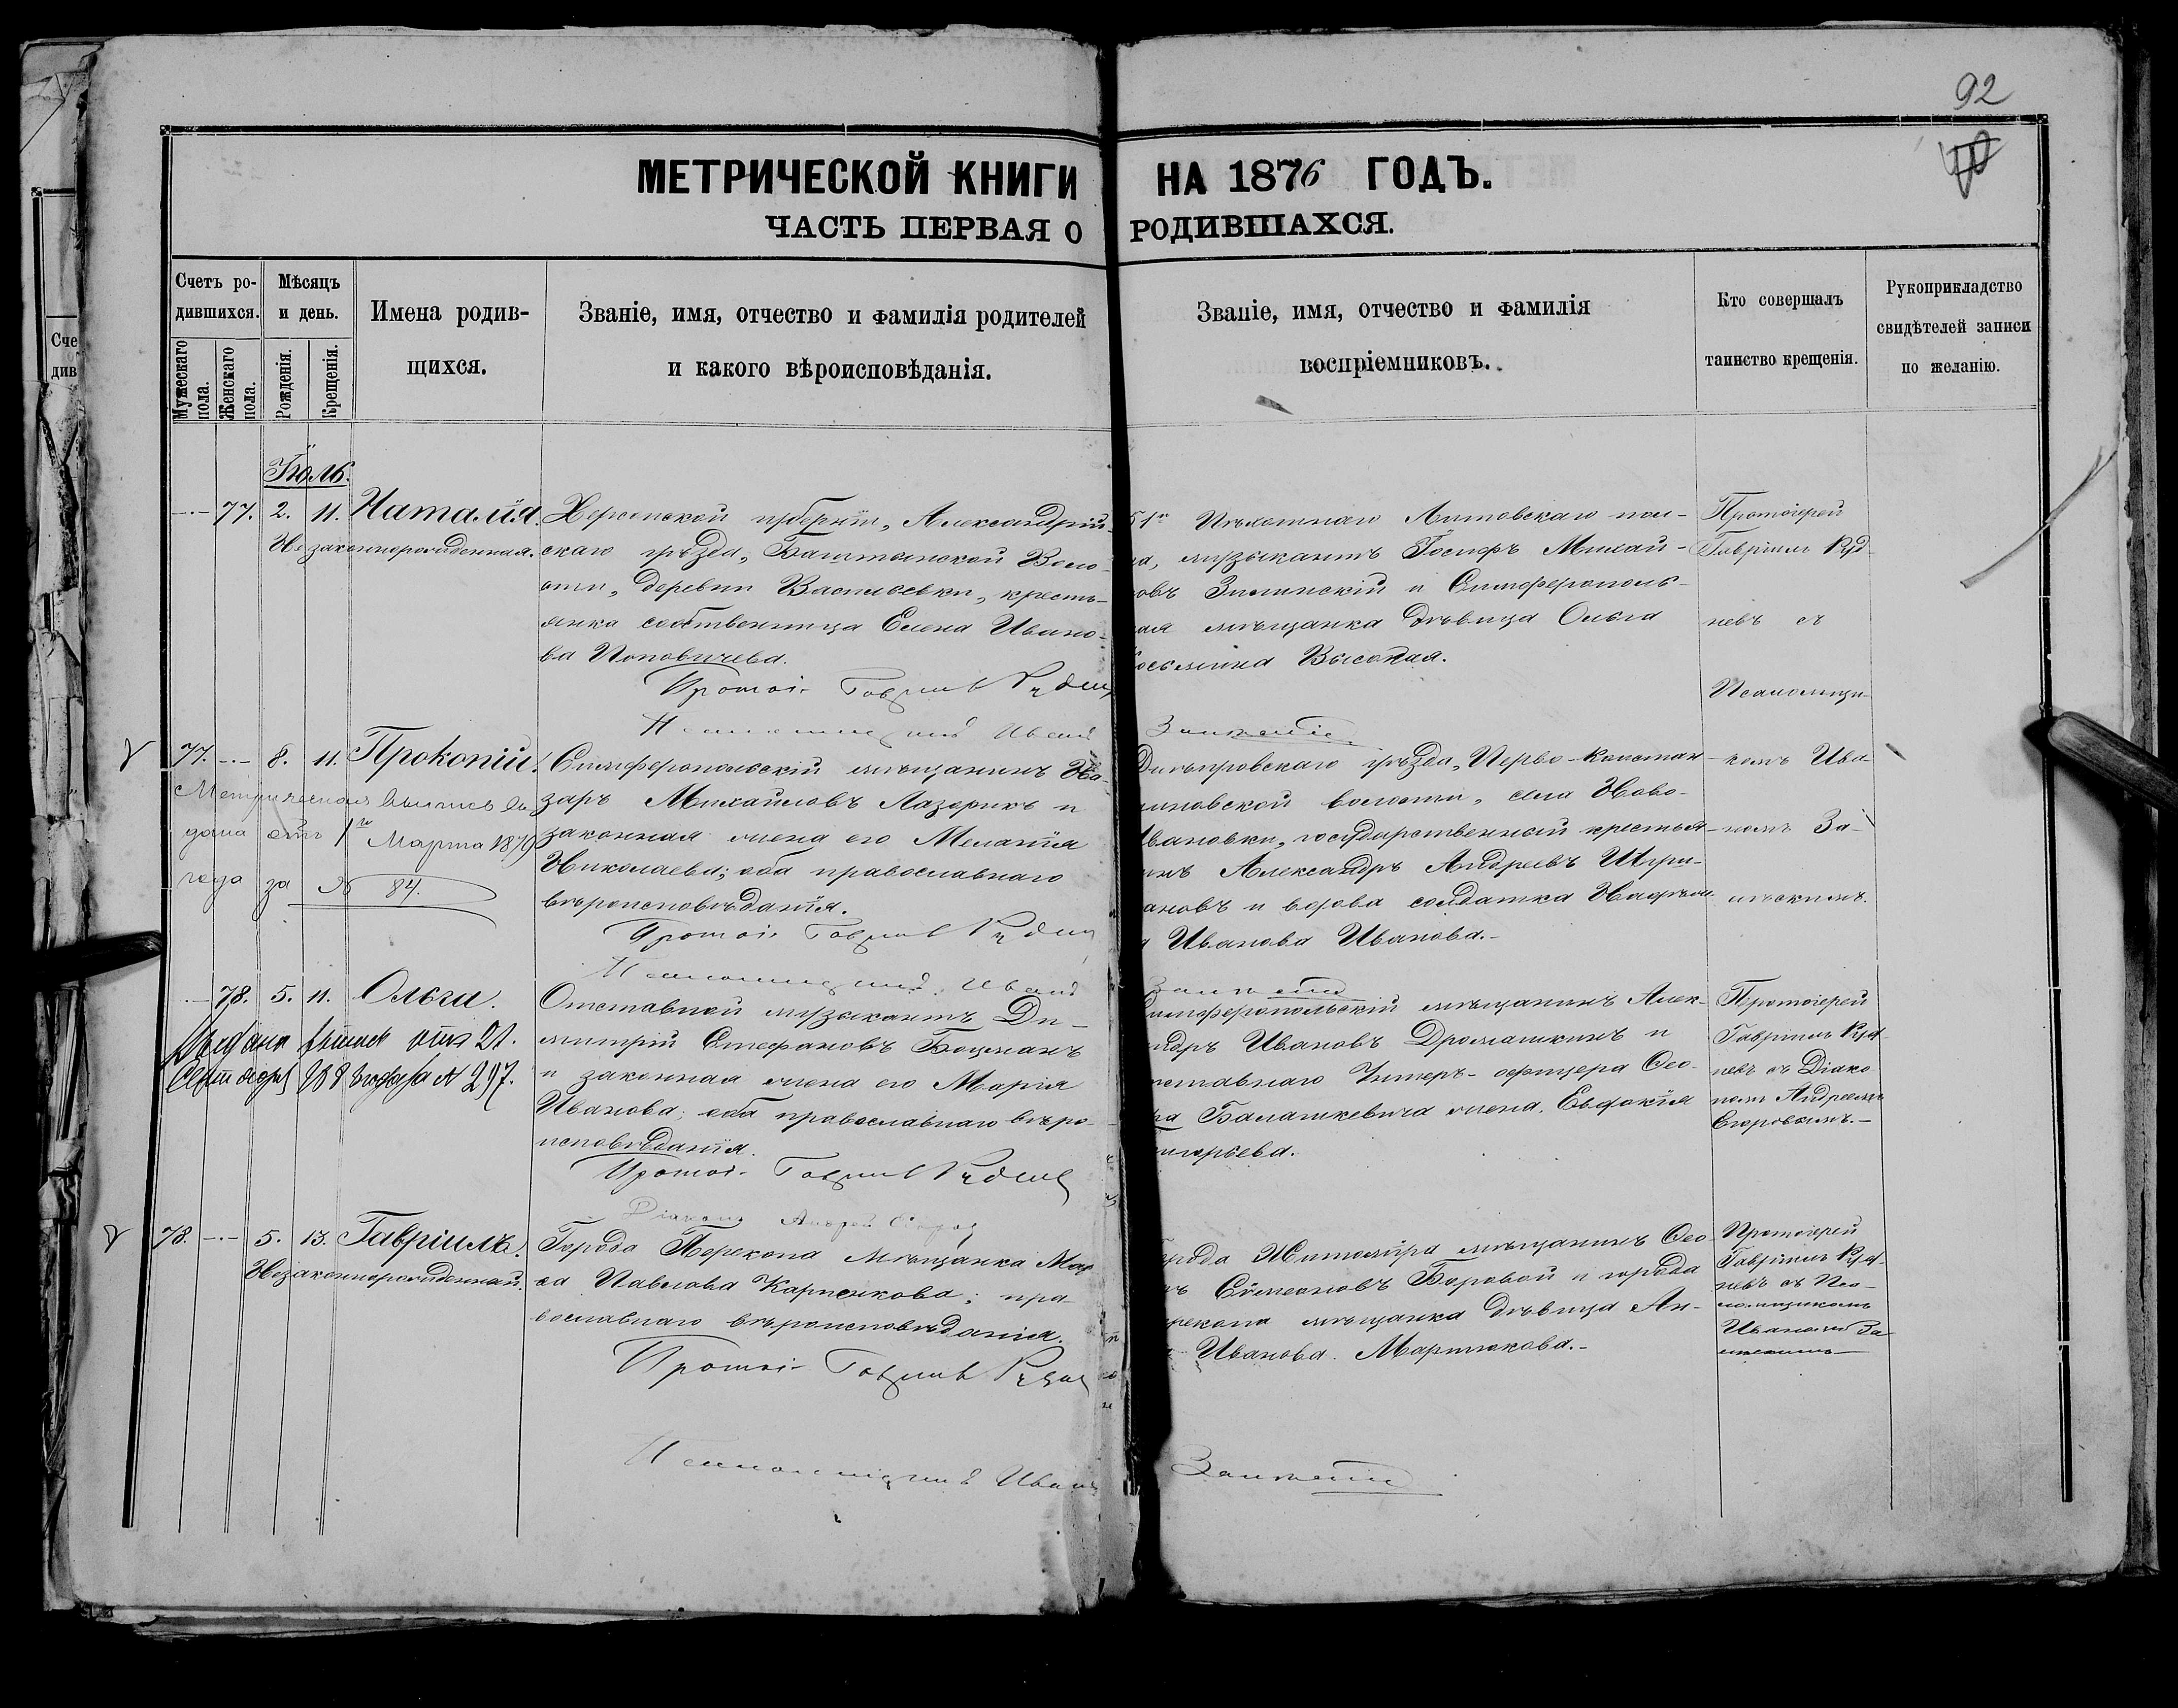 92
МЕТРИЧЕСКОЙ КНИГИ НА 1876 ГОДЪ.
ЧАСТЬ ПЕРВАЯ О РОДИВШАХСЯ.
Счетъ ро-
дившихся.
Мужескаго пола.
Женскаго пола.
Мѣсяцъ
и день.
Рожденія.
Крещенія.
Имена родив-
щихся.
Званіе, имя, отчество и фамилія родителей
и какого вѣроисповѣданія.
Званіе, имя, отчество и фамилія
воспріемниковъ.
Кто совершалъ
таинство крещенія.
Рукоприкладство
свидѣтелей записи
по желанію.
Сче
див
Іюль.
77. 2. 11. Наталія.
Незаконнорожденная.
Херсонской губерніи, Александрій-
скаго уѣзда, Баштынской Воло-
сти, деревни Васильевки, кресть-
янка собственница Елена Ивано-
ва Поповичева.
Протоі. Гавріилъ Руднев
Псаломщикъ Иванъ
51го Пѣхотнаго Литовскаго пол-
ка, музыкантъ Іосифъ Михай-
овъ Зилинскій и Симферополь-
ая мѣщанка дѣвица Ольга
Высокая.
Протоіерей
Гавріилъ Руд-
невъ съ
Псаломщи-
77. 8. 11. Прокопій.
Метрическая выпись вы-
дана отъ 1го Марта 1879
года за № 84.
Симферопольскій мѣщанинъ На-
заръ Михайловъ Лазарикъ и
законная жена его Меланія
Николаева; оба православнаго
вѣроисповѣданія.
Протоі. Гавріилъ Руднев
Псаломщикъ Иванъ
Днѣпровскаго уѣзда, Перво-Констан-
иновской волости, села Ново-
Ивановки, государственный крестья-
инъ Александръ Андреевъ
ановъ и вдова солдатка
Иванова Иванова.-
комъ Ива-
номъ За-
78. 5. 11. Ольга.
Выдана выпись отъ 21.
Сентября 188 года за № 297.
Отставной музыкантъ Ди-
митрій Стефановъ Боцманъ
и законная жена его Марія
Иванова; оба православнаго вѣро-
исповѣданія.
Протоі. Гавріилъ Руднев
Діаконъ Андрей Егоров
имферопольскій мѣщанинъ Алек-
ндръ Ивановъ Дромашкинъ и
тставнаго Унтеръ-офицера Ѳео-
ра Балашкевича жена, Евдокія
игорьева.
Протоіерей
Гавріилъ Руд-
невъ съ Діако-
номъ Андреемъ
Егоровымъ.-
78. 5. 13. Гавріилъ.
Незаконнорожденный.
Города Перекопа мѣщанка Мар-
ѳа Павлова Карпенкова; пра-
вославнаго вѣроисповѣданія.
Протоі. Гавріилъ Руднев
Псаломщикъ Иванъ
орода Житоміра мѣщанинъ Ѳео-
ъ Сѵмеоновъ Боровой и города
ерекопа мѣщанка дѣвица Ан-
Иванова Мартынкова.-
Протоіерей
Гавріилъ Руд-
невъ съ Пса-
ломщикомъ
Иваномъ За-